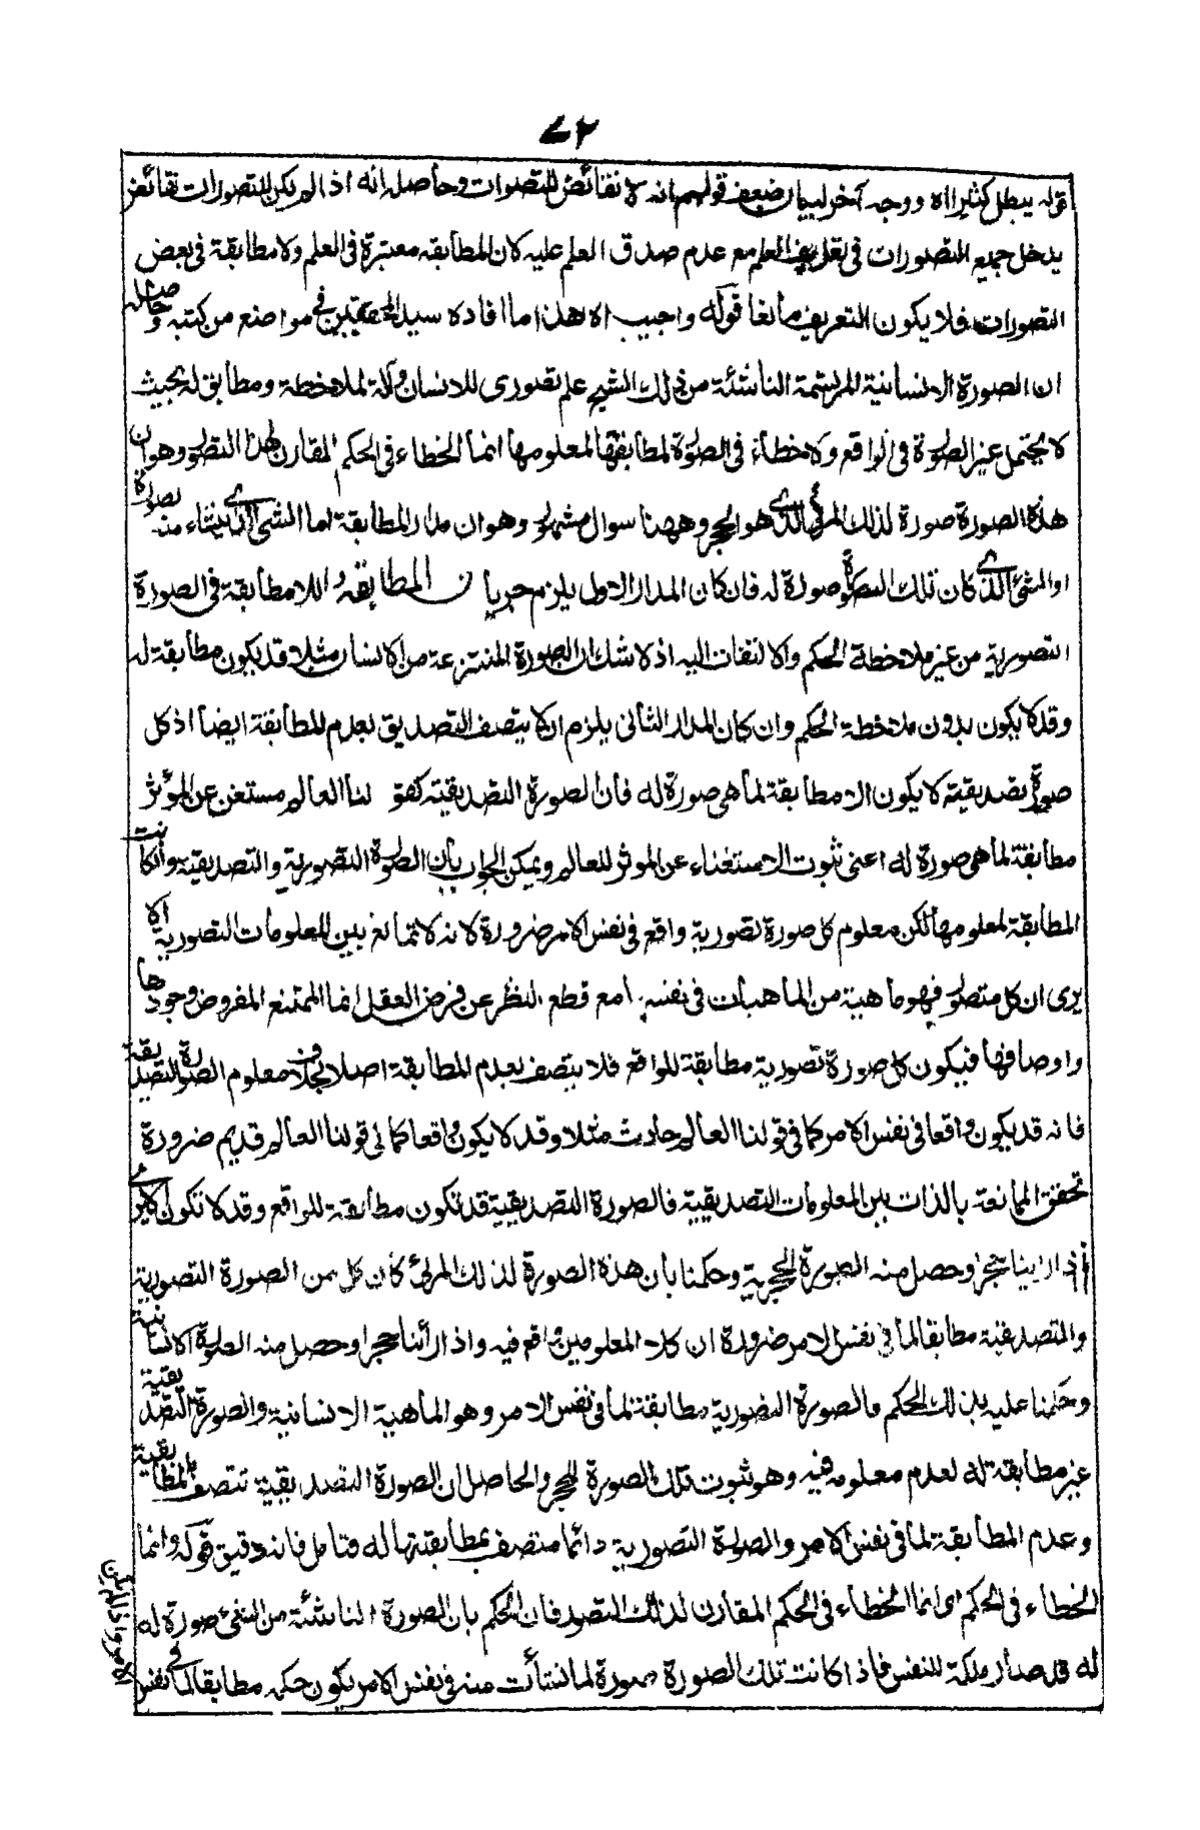 ٧٢
قوله يبطل كثيرا اه ووجه آخر لبيان ضعف قولهم انه لا نقائض للتصورات وحاصله انه اذا لم يكن للتصورات نقائض
يدخل جميع التصورات في تعريف العلم مع عدم صدق العلم عليه لان المطابقه معتبرة في العلم ولا مطابقة في بعض
التصورات فلا يكون التعريف مانعا قوله واجيب اه هذا ما افاده سيد المحققين في مواضع من كتبه وحاصله
ان الصورة الانسانية المرتسمة الناشئة من ذلك الشبح علم تصوري للانسان وآلة لملاحظة ومطابق له بحيث
لا يحتمل غير الصورة في الواقع ولا خطأ في الصورة لمطابقتها لمعلومها انما الخطاء في الحكم المقارن لهذا التصور وهو ان
هذه الصورة صورة لذلك المرئي الذي هو الحجر وههنا سوال مشهور وهو ان مدار المطابقة اما الشئ الذي ينشاء منه الصورة
او الشئ الذي كان تلك الصورة صورة له فان كان المدار الاول يلزم جريان المطابقة واللامطابقة في الصورة
التصورية من غير ملاحظة الحكم والالتفات اليه اذ لا شك ان الصورة المنتزعة من الانسان مثلا قد يكون مطابقة له
وقد لا يكون بدون ملاحظة الحكم وان كان المدار الثاني يلزم ان لا يتصف التصديق بعدم المطابقة ايضا اذ كل
صورة تصديقية لا يكون الا مطابقة لما هي صورة له فان الصورة التصديقية كقولنا العالم مستغن عن المؤثر
مطابقة لما هي صورة له اعني ثبوت الاستغناء عن الموثر للعالم ويمكن الجواب بأن الصورة التصورية والتصديقية وان كانت
المطابقة لمعلومها لكن معلوم كل صورة تصورية واقع في نفس الامر ضرورة لانه لا تمانع بين المعلومات التصورية الا
يرى ان كل متصور فهو ماهية من الماهيات في نفسها مع قطع النظر عن فرض العقل انما الممتنع المفروض وجودها
واوصافها فيكون كل صورة تصورية مطابقة للواقع فلا يتصف بعدم المطابقة اصلا بخلاف معلوم الصورة التصديقية
فانه قد يكون واقعا في نفس الامر كما في قولنا العالم حادث مثلا وقد لا يكون واقعا كما في قولنا العالم قديم ضرورة
تحقق الممانعة بالذات بين المعلومات التصديقية فالصورة التصديقية قد تكون مطابقة للواقع وقد لا تكون الا يرى
اذا راينا حجرا وحصل منه الصورة الحجرية وحكمنا بأن هذه الصورة لذلك المرئي كان كل من الصورة التصورية
والتصديقية مطابقا لما في نفس الامر ضرورة ان كلا المعلومين واقع فيه واذا رأينا حجرا وحصل منه الصورة الانسانية
وحكمنا عليه بذلك الحكم فالصورة التصورية مطابقة لما في نفس الامر وهو الماهية الانسانية والصورة التصديقية
غير مطابقة له لعدم معلومه فيه وهو ثبوت تلك الصورة للحجر والحاصل ان الصورة التصديقية تتصف بالمطابقية
وعدم المطابقة لما في نفس الامر والصورة التصورية دائما متصف بمطابقتها له فتامل فانه دقيق قوله وانما
الخطاء في الحكم اى انما الخطاء في الحكم المقارن لذلك التصور فان الحكم بان الصورة الناشئة من الشئ صورة له
له قد صار ملكة للنفس فاذا كانت تلك الصورة صورة لما نشأت منه في نفس الامر يكون حكمه مطابقا لما في نفس
الامر واذا لم يكن